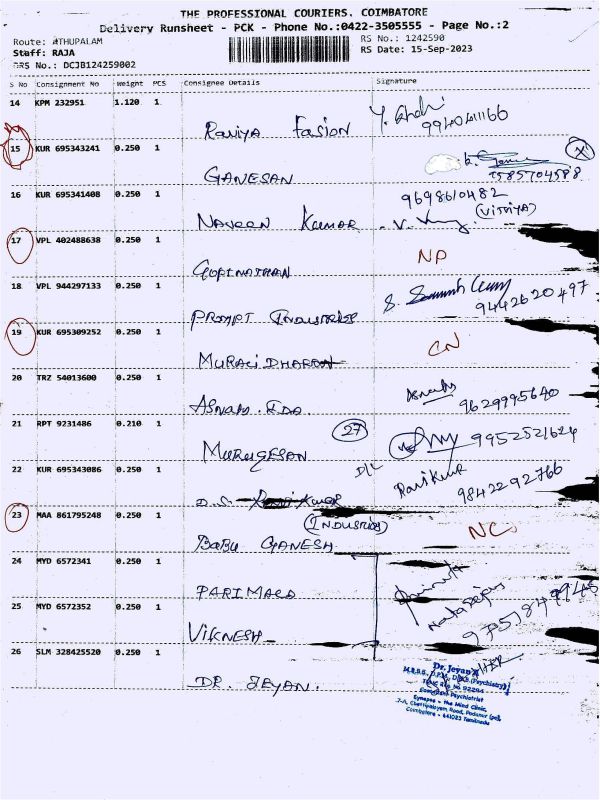 THE PROFESSIONAL COURIERS. COIMBATORE
Delivery Runsheet - PCK - Phone No.:0422-3505555 - Page No.:2
Route: ATHUPALAM RS No.: 1242590
Staff: RAJA RS Date: 15-Sep-2023
DRS No.: DCJB124259002
S No Consignment No Weight PCS Consignee Details Signature
14 KPM 232951 1.120 1
Raniya Fasion 9940411166
15 KUR 695343241 0.250 1
GANESAN 7585704588
16 KUR 695341408 0.250 1 9698610482
NAVEEN Kumar (VITHYA)
17 VPL 402488638 0.250 1 NP
GOPINATHAN
18 VPL 944297133 0.250 1
PROMPT INDUSTRISE 9442620497
19 KUR 695309252 0.250 1 CN
MURALI DHARAN
20 TRZ 54013600 0.250 1
9629995640
21 RPT 9231486 0.210 1 27
MURUGESAN 9952521624
22 KUR 695343086 0.250 1 D/L Ravikumar
9842292766
23 MAA 861795248 0.250 1 (INDUSTRIES) NC
BABU GANESH
24 MYD 6572341 0.250 1
PARIMALA
25 MYD 6572352 0.250 1 Natarajan
VIKNESH
26 SLM 328425520 0.250 1
DR. JEYAN.
Dr. Jeyan
Consultant Psychiatrist
Synapse - the Mind Clinic,
Coimbatore - 641023 Tamilnadu